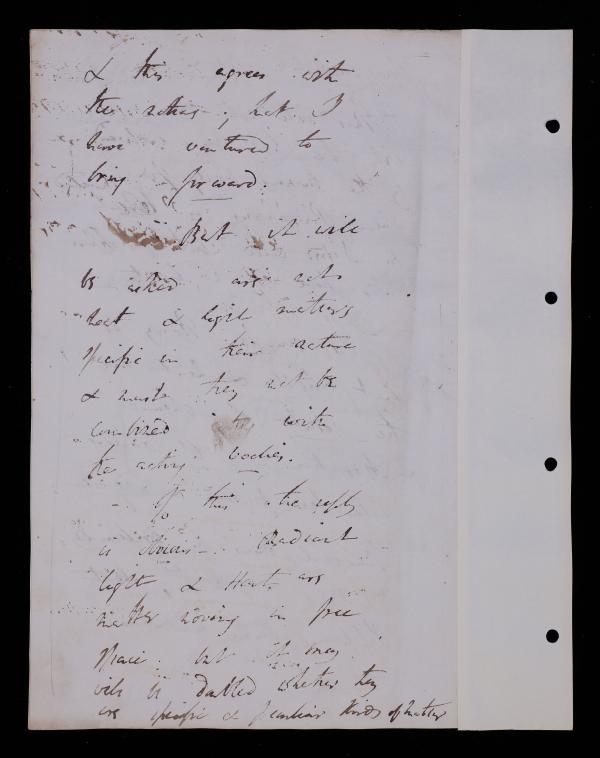 & this agrees with
the notion, that I
have ventured to
bring forward.
But it will
be asked are not
heat & light matters
specific in their nature
& must they not be
combined with
the acting bodies.
- To this the reply
is obvious - Radiant
light & Heat are
matter moving in free
space; but it may
well be doubted whether they
are specific & peculiar kinds of matter